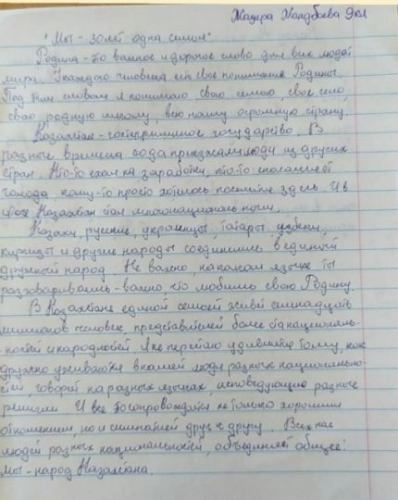 Жазира Жолдбаева 9кл
"Мы - семья одна
Родина - это важное и дорогое слово для всех людей
мира. У каждого человека есть свое понимание Родины.
Под этим словом я понимаю свою семью, свое село,
свою родную школу, всю нашу огромную страну.
Казахстан - гостеприимное государство. В
разное время сюда приезжали люди из других
стран. Кто-то ехал на заработки, кто-то спасался от
голода, кому-то просто хотелось посетить здесь. И в
итоге Казахстан стал многонациональным.
Казахи, русские, украинцы, татары, узбеки,
киргизы и другие народы соединились в единый
дружный народ. Не важно, на каком языке ты
разговариваешь - важно, что любишь свою Родину.
В Казахстане единой семьей живет семнадцать
миллионов человек, представителей более ста националь-
ностей и народностей. Я не перестаю удивляться тому, как
дружно уживаются в нашей люди разных национально-
стей, говорят на разных языках, исповедующие разные
религии. И все это сопровождается не только хорошими
отношениями, но и симпатией друг к другу. Всех нас
людей разных национальностей, объединяет общее:
мы - народ Казахстана.